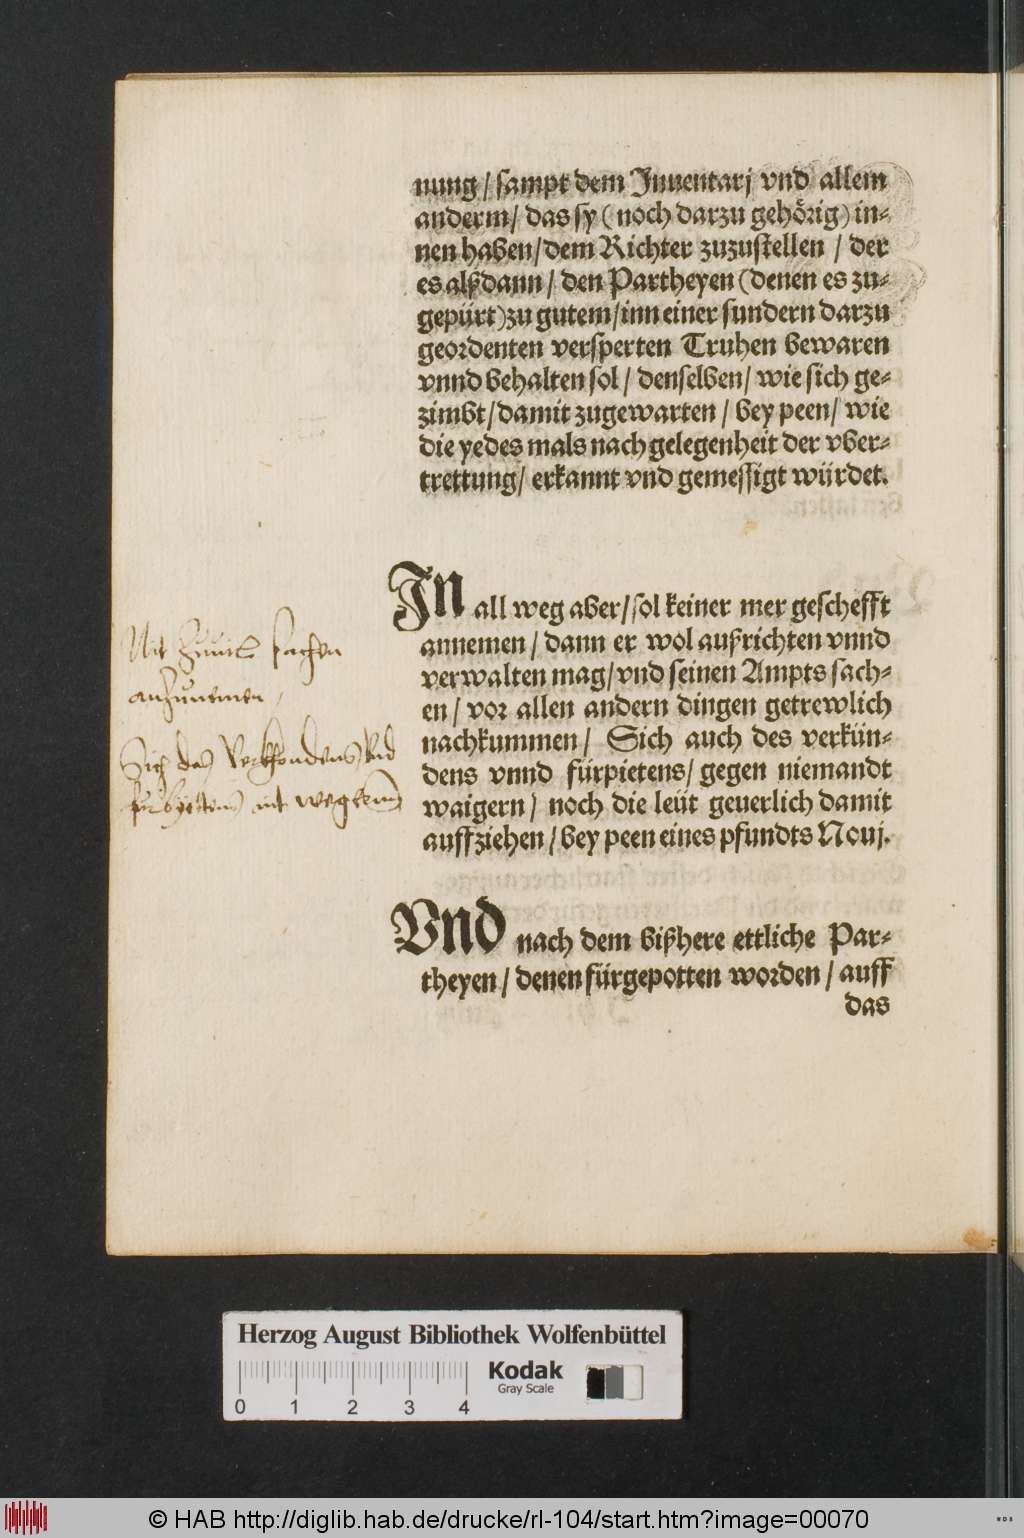 nung / sampt dem Innentarj vnd allem
anderm / das sy ( noch darzu gehörig ) in⸗
nen haben / dem Richter zuzustellen / der
es alßdann / den Partheyen ( denen es zu⸗
gepürt ) zu gutem / inn einer sundern darzu
geordenten versperten Truhen bewaren
vnnd behalten sol / denselben / wie sich ge⸗
zimbt / damit zugewarten / bey peen / wie
die yedes mals nach gelegenheit der vber⸗
trettung / erkannt vnd gemessigt würdet.
IN all weg aber / sol keiner mer geschefft
annemen / dann er wol außrichten vnnd
verwalten mag / vnd seinen Ampts sach⸗
en / vor allen andern dingen getrewlich
nachkummen / Sich auch des verkün⸗
dens vnnd fürpietens / gegen niemandt
waigern / noch die leüt geuerlich damit
auffziehen / bey peen eines pfundts Nouj.
Nit Zuuil sachen
anzunemen /
Sich des Verkhondens vnd
furbyettens nit wegkern
VNd nach dem bißhere ettliche Par⸗
theyen / denen fürgepotten worden / auff
das
Herzog August Bibliothek Wolfenbüttel
Kodak
Gray Scale
0 1 2 3 4
© HAB http://diglib.hab.de/drucke/rl-104/start.htm?image=00070